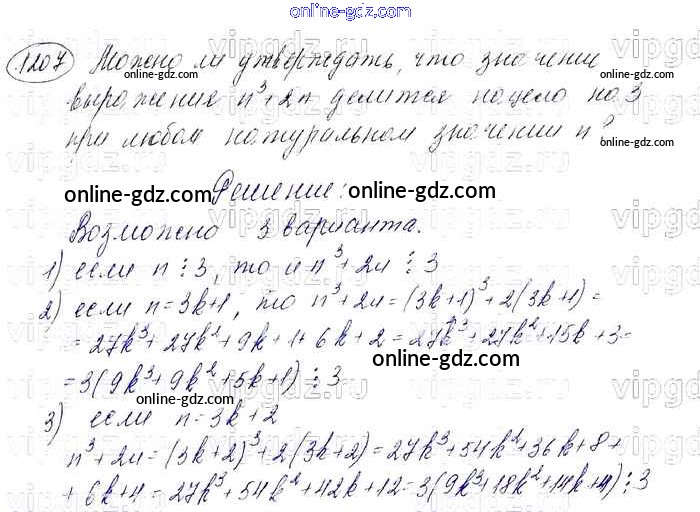 online-gdz.com
1207 Можно ли утверждать, что значение
выражения n³+2n делится нацело на 3
при любом натуральном значении n?
online-gdz.com
online-gdz.com
Решение:
online-gdz.com
online-gdz.com
Возможно 3 варианта.
1) если n ⋮ 3, то и n³+2n ⋮ 3
2) если n=3k+1, то n³+2n=(3k+1)³+2(3k+1)=
=27k³+27k²+9k+1+6k+2=27k³+27k²+15k+3=
online-gdz.com
=3(9k³+9k²+5k+1) ⋮ 3
online-gdz.com
online-gdz.com
3) если n=3k+2
n³+2n=(3k+2)³+2(3k+2)=27k³+54k²+36k+8+
+6k+4=27k³+54k²+42k+12=3(9k³+18k²+14k+4) ⋮ 3
online-gdz.com